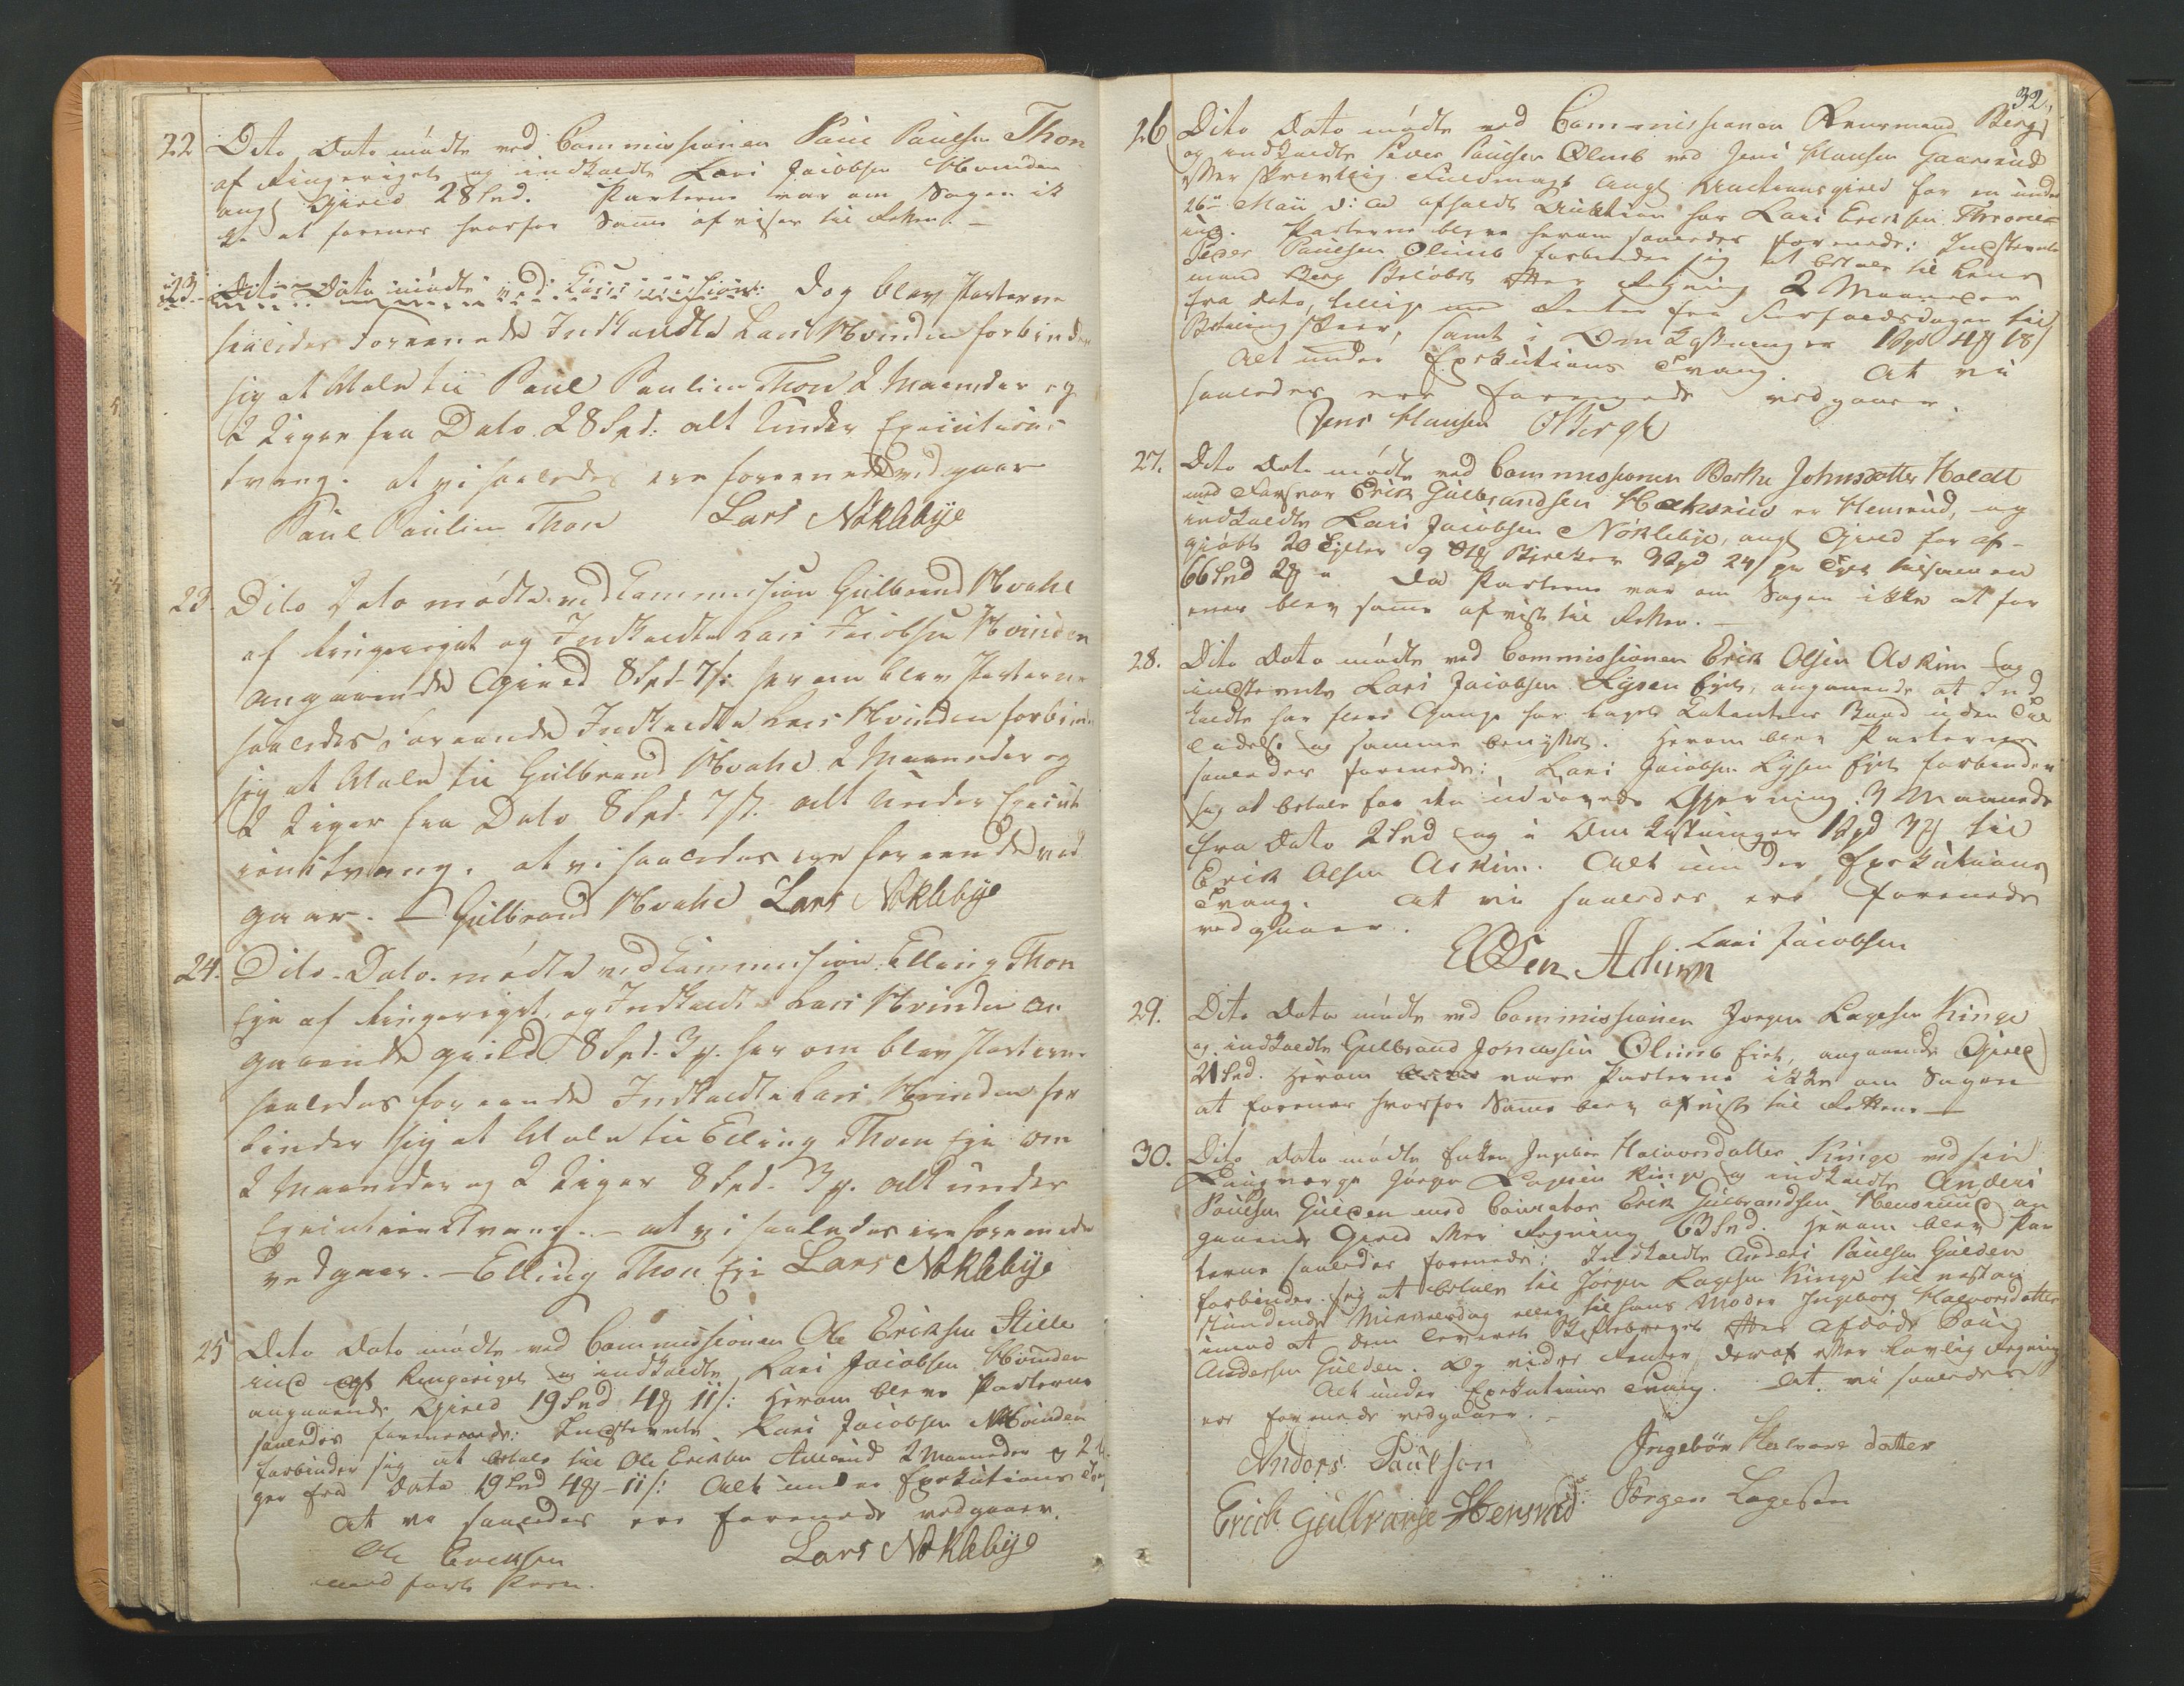 22 Dito Dato mødte ved Commissionen Paul Paulsen Thon
af Ringeriget og indkaldte Lars Jacobsen Hvinden
angl Gield 28 Spd. Parterne var om Sagen ik
ke at forenes hvorfor Samme afvises til Retten. —
23 Dito Dato mødte ved Commission: Dog blev Parterne
saaledes Foreenede Indkaldte Lars Hvinden forbinder
sig at btale til Paul Paulsen Thon 2 Maaneder og
2 Uger fra Dato 28 Spd: alt under Executions
tvang. at vi saaledes ere foreenede vedgaar
Paul Paulsen Thon Lars Nøklebye
23. Dito Dato mødte ved Commission Gulbrand Hvahl
af Ringeriget og Indkaldte Lars Jacobsen Hvinden
angaaende Gield 8 Spd. 7 s: her om blev Parterne
saaledes foreende Indkaldte Lars Hvinden forbinder
sig at btale til Gulbrand Hvahl 2 Maaneder og
2 Uger fra Dato 8 Spd. 7 s. alt under Execut
ionstvang. at vi saaledes ere foreende ved
gaar. — Gulbrand Hvahl Lars Nøklebye
24. Dito. Dato. mødte ved Commission Elling Thon
Eje af Ringeriget, og Indkaldte Lars Hvinden an
gaaende gield 8 Spd. 3 s. her om blev Parterne
saaledes foreende Indkaldte Lars Hvinden for
binder sig at btale til Elling Thon Eje om
2 Maaneder og 2 Uger 8 Spd. 3 s. alt under
Executionstvang. — at vi saaledes ere foreenede
vedgaar. — Elling Thon Eje Lars Nøklebye
25 Dito Dato mødte ved Commissionen Ole Eriksen Stille
rud af Ringeriget og indkaldte Lars Jacobsen Hvinden
angaaende Gield 19 Spd 4 11 s: Herom bleve Parterne
saaledes forenede: Indstevnte Lars Jacobsen Hvinden
forbinder sig at betale til Ole Eriksen Stillerud 2 Maaneder og 2 U
ger fra Dato 19 Spd 4 - 11 s: Alt under Exekutions Tvang
At vi saaledes ere forenede vedgaaer.
Ole Eriksen Lars Nøklebye
medført Pen.
32.
26 Dito Dato mødte ved Commissionen Lensmand Berg
og indkaldte Peder Paulsen Ølimb ved Jens Hansen Gaarerud
efter skrivtlig Fuldmagt angl Auctionsgield for en under
26de Mai d: A afholdt Auktion hos Lars Eriksen
Parterne bleve herom saaledes forenede: Indstevnte
Peder Paulsen Ølimb forbinder sig at betale til Lens
mand Berg Beløbet efter Regning 2 Maaneder
fra dato, tillige med Renter fra Forfaldsdagen til
Betaling skeer, samt i Omkostninger 1 Spd 4 18 s
Alt under Exekutions Tvang. At vi
saaledes ere forenede vedgaaer.
Jens Hansen
27. Dito Dato mødte ved Commissionen Berthe Johnsdatter Holdt
med Forsvar Erik Gulbrandsen Hensrud, og
indkaldte Lars Jacobsen Nøklebye, angl Gield for af-
kjøbt 20 Tylter 9 3 Spd 24 s pr Tylt tilsammen
66 Spd 2 Da Parterne var om Sagen ikke at for
enes blev samme afvist til Retten. —
28. Dito Dato mødte ved Commissionen Erik Olsen Askim og
indstevnte Lars Jacobsen Lysen Eje, angaaende at Ind
kaldte har flere Gange har taget Citantens Baad uden Til
ladelse og samme benyttet. Herom blev Parterne
saaledes forenede: Lars Jacobsen Lysen Eje forbinder
sig at betale for den udøvede Gjerning 3 Maaneder
fra Dato 2 Spd og i Omkostninger 1 Spd 3 til
Erik Olsen Askim. Alt under Exekutions
Tvang. At vi saaledes ere forenede
vedgaaer.
Lars Jacobsen
E Olsen Askim
29. Dito Dato mødte ved Commissionen Jørgen Lagesen Kinge
og indkaldte Gulbrand Jonassen Ølimb Eie, angaaende Gield
21 Spd. Herom vare Parterne ikke om Sagen
at forenes hvorfor Samme blev afvist til Retten —
30. Dito Dato mødte Enken Ingebør Halvorsdatter Kinge ved sin
Laugværge Jørgen Lagesen Kinge og indkaldte Anders
Paulsen Gulden med Courator Erik Gulbrandsen Hensrud an
gaaende Gield efter Regning 63 Spd. Herom blev Par
terne saaledes forenede: Indkaldte Anders Paulsen Gulden
forbinder sig at betale til Jørgen Lagesen Kinge til næst an
stundende Mikkelsdag eller til hans Moder Ingeborg Halvorsdatter
imod at dem leveres Skiftebrevet efter afdøde Poul
Andersen Gulden. Og vider Renter deraf efter Lovlig Regning
Alt under Exekutions Tvang. At vi saaledes
ere forenede vedgaaer. —
Anders Paulson Ingebør Halvors datter
Erich Gulbranse Hensrud Jørgen Lagesen